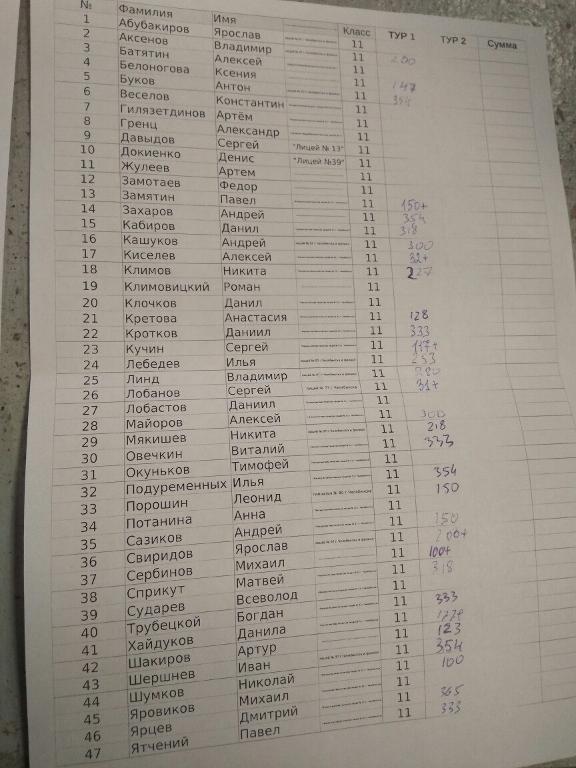 № Фамилия Имя Класс ТУР 1 ТУР 2 Сумма
1 Абубакиров Ярослав 11
2 Аксенов Владимир 11
3 Батятин Алексей 11 200
4 Белоногова Ксения 11
5 Буков Антон 11 147
6 Веселов Константин 11 354
7 Гилязетдинов Артём 11
8 Гренц Александр 11
9 Давыдов Сергей "Лицей № 13" 11
10 Докиенко Денис "Лицей №39" 11
11 Жулеев Артем 11
12 Замотаев Федор 11
13 Замятин Павел 11 150+
14 Захаров Андрей 11 354
15 Кабиров Данил 11 318
16 Кашуков Андрей 11 300
17 Киселев Алексей 11 32+
18 Климов Никита 11 227
19 Климовицкий Роман 11
20 Клочков Данил 11
21 Кретова Анастасия 11 128
22 Кротков Даниил 11 333
23 Кучин Сергей 11 117+
24 Лебедев Илья 11 253
25 Линд Владимир 11
26 Лобанов Сергей 11 31+
27 Лобастов Даниил 11
28 Майоров Алексей 11 300
29 Мякишев Никита 11 218
30 Овечкин Виталий 11 333
31 Окуньков Тимофей 11
32 Подуременных Илья 11 354
33 Порошин Леонид 11 150
34 Потанина Анна 11
35 Сазиков Андрей 11 150
36 Свиридов Ярослав 11 200+
37 Сербинов Михаил 11 100+
38 Сприкут Матвей 11 318
39 Сударев Всеволод 11
40 Трубецкой Богдан 11 333
41 Хайдуков Данила 11 177+
42 Шакиров Артур 11 123
43 Шершнев Иван 11 354
44 Шумков Николай 11 100
45 Яровиков Михаил 11
46 Ярцев Дмитрий 11 365
47 Ятчений Павел 11 333